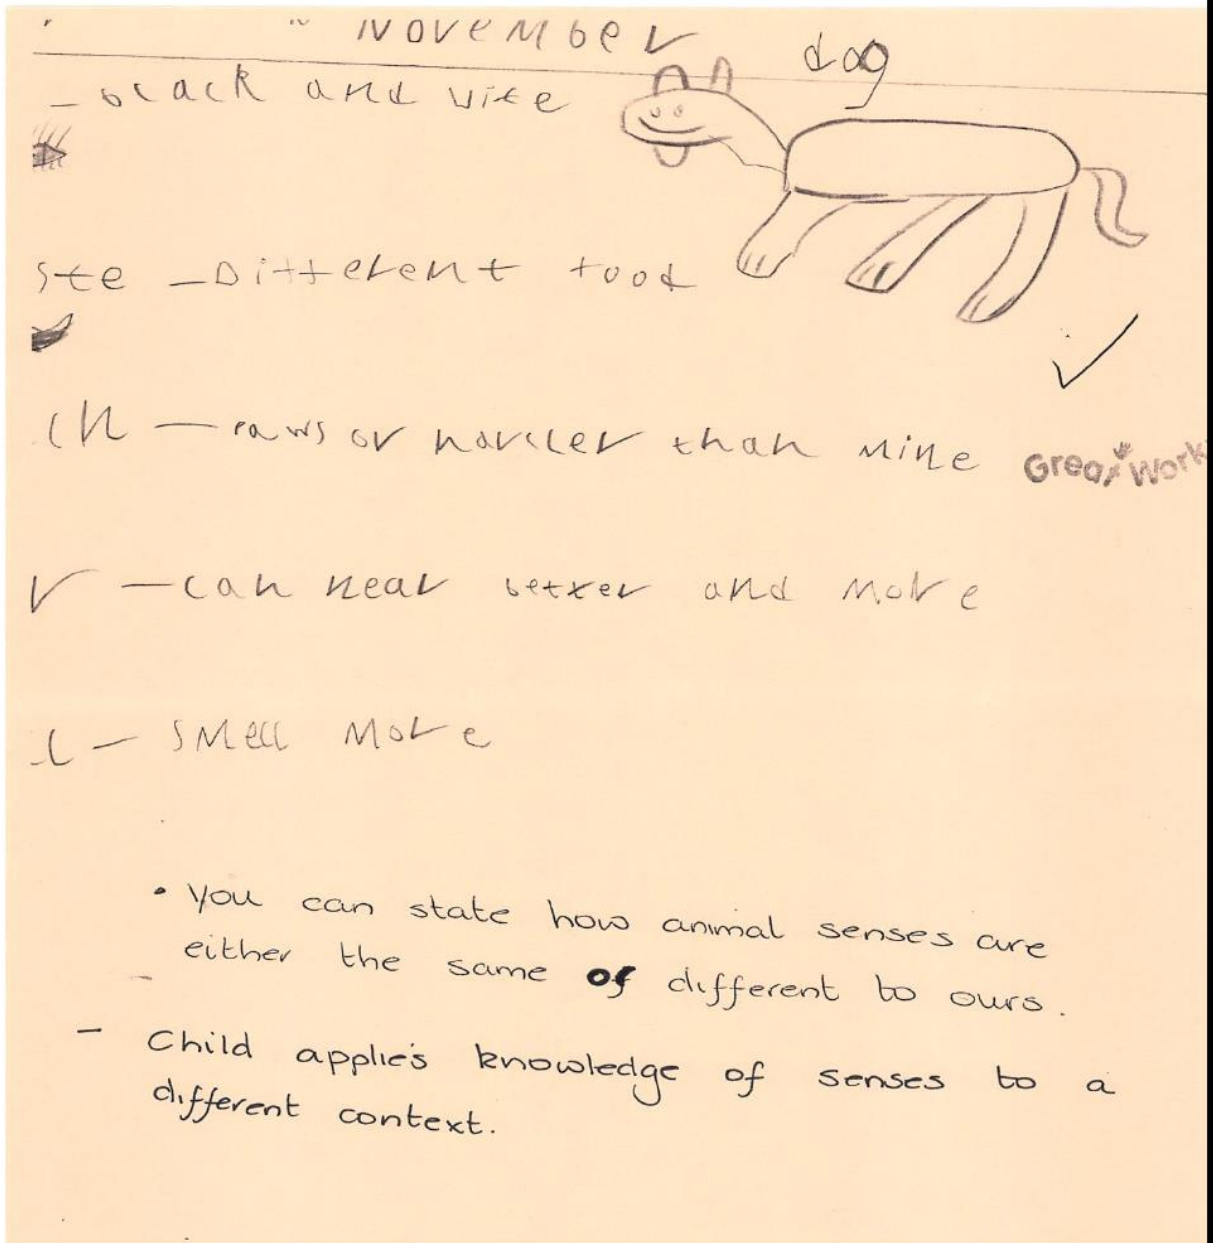 November
dog
- black and vite
ste - Different food
ch - paws or harder than mine
Great Work
r - can hear better and more
l - smell more
• You can state how animal senses are
either the same of different to ours.
- Child applie's knowledge of senses to a
different context.